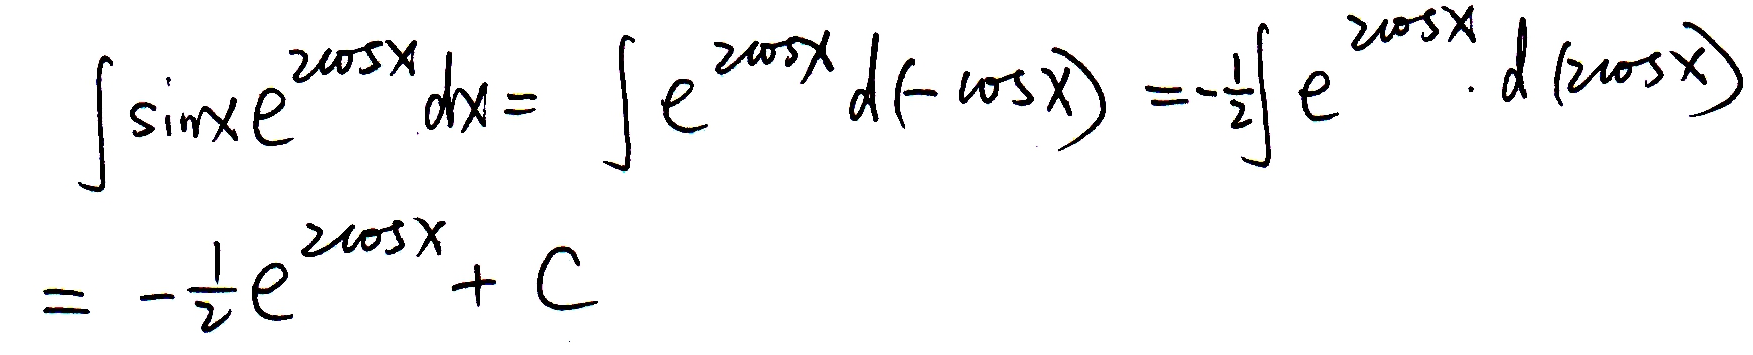 ∫ sinx e^{2cosx} dx = ∫ e^{2cosx} d(-cosx) = -\frac{1}{2} ∫ e^{2cosx} · d(2cosx)
= -\frac{1}{2} e^{2cosx} + C